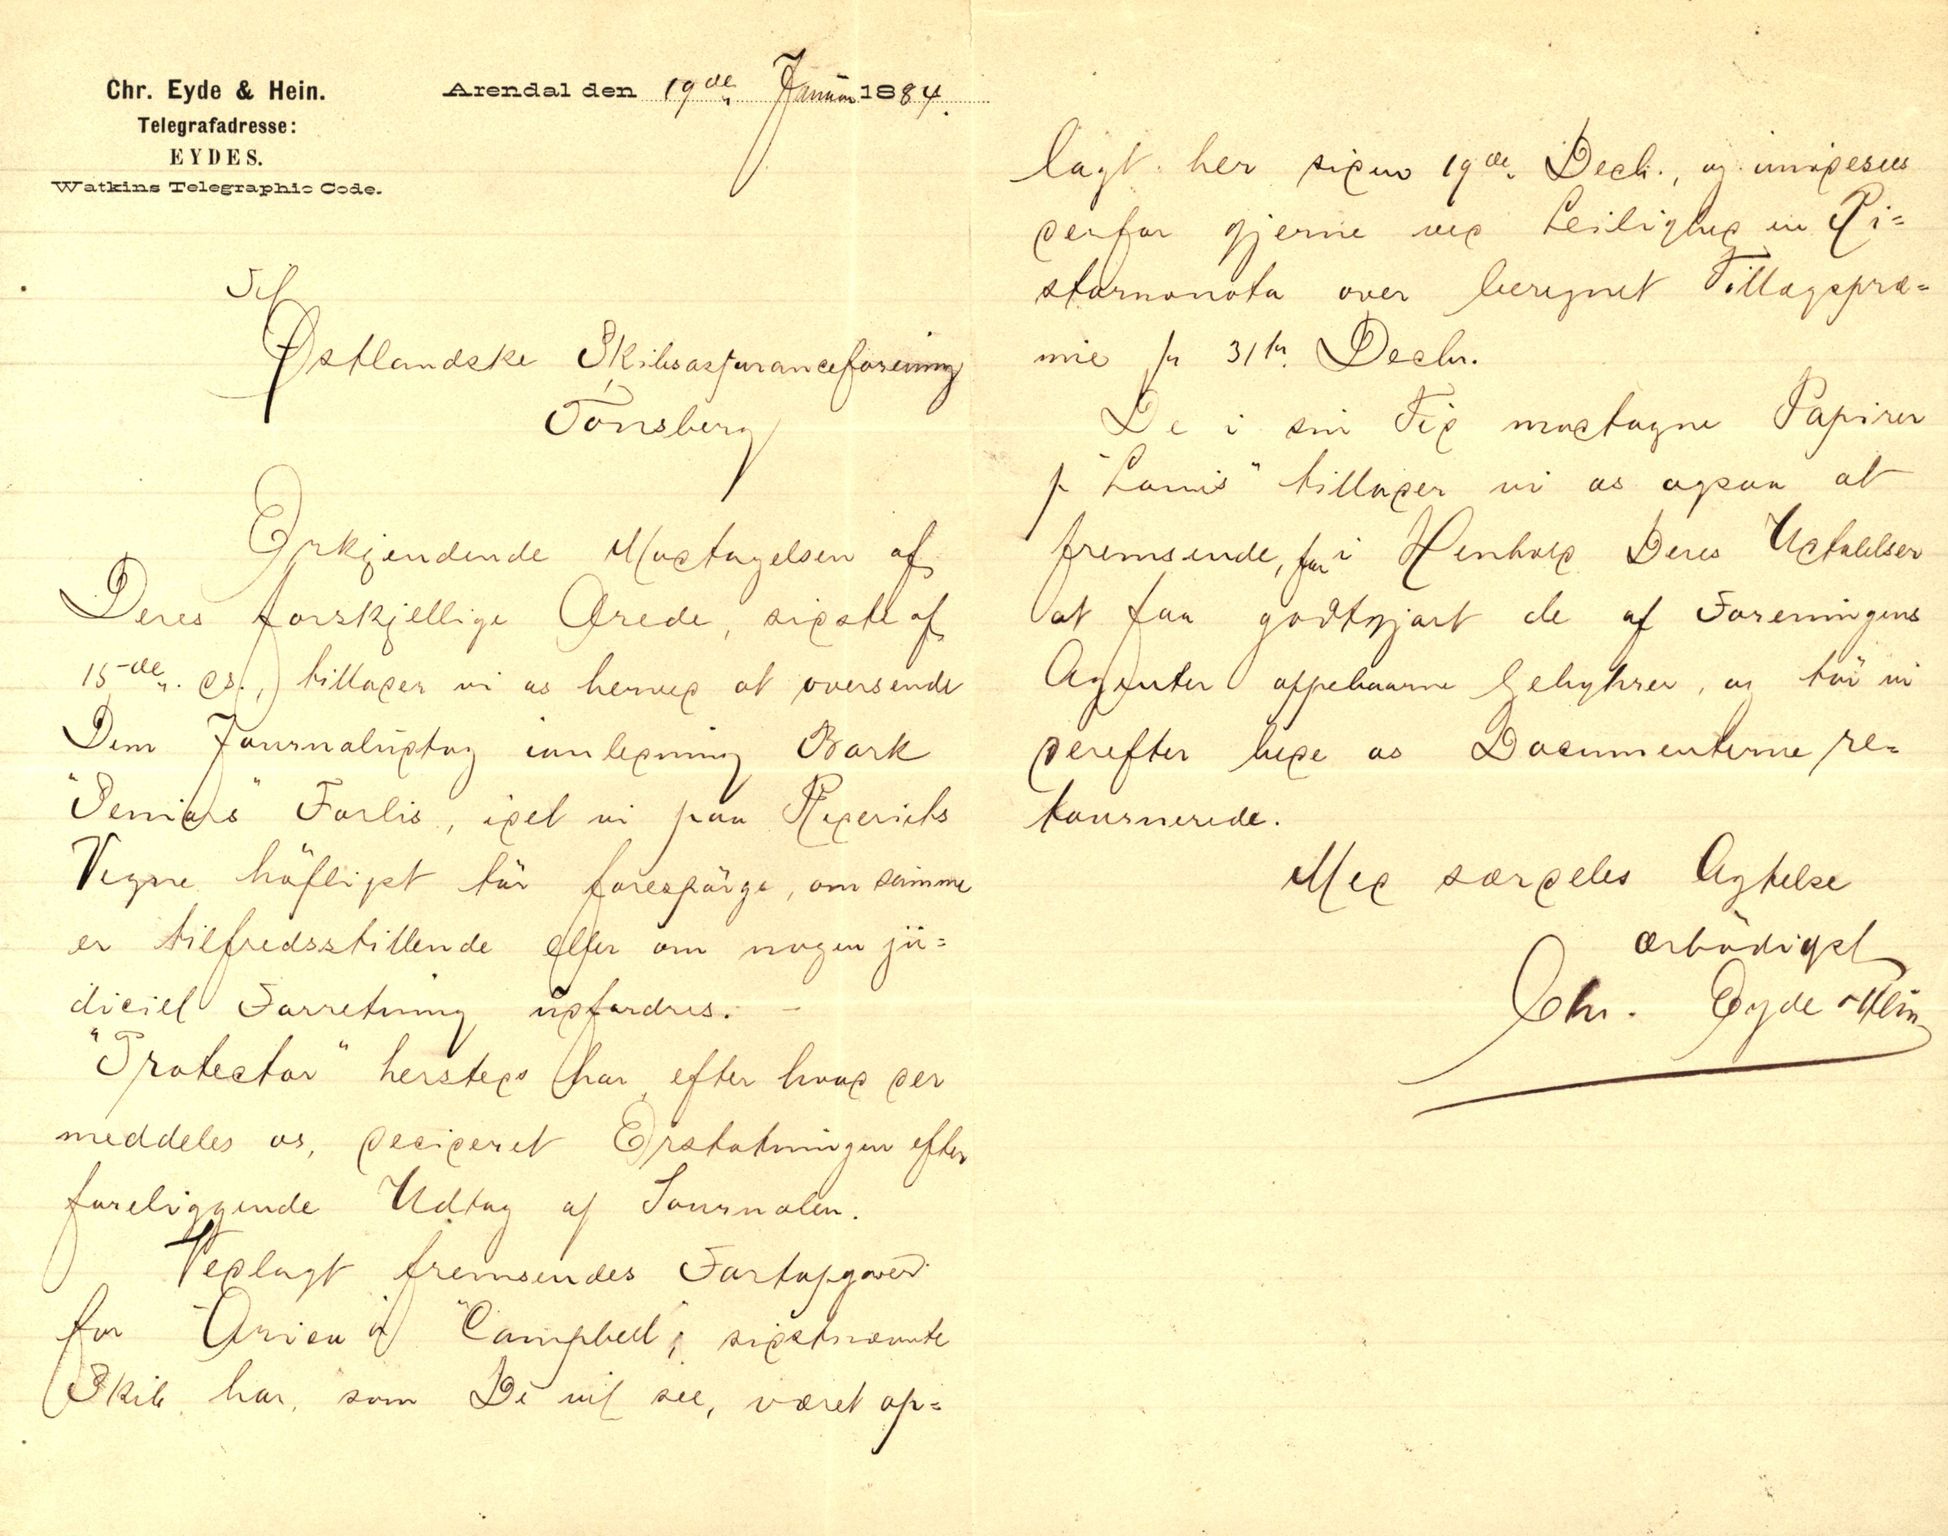 Chr. Eyde & Hein.
Telegrafadresse:
EYDES.
Watkins Telegraphic Code.
Arendal den 19de Januar 1884.
Til
Østlandske Skibsassuranceforening
Tönsberg
Erkjendende Modtagelsen af
Deres forskjellige Ærede, sidste af
15de ds., tillader vi os herved at oversende
Dem Journaludtog anledning Bark
"Peniels" Forlis, idet vi paa Rederiets
Vegne höfligst tör forespörge, om samme
er tilfredsstillende eller om nogen ju=
diciel Forretning udfordres. –
"Protector" hersteds har efter hvad der
meddeles os, decideret Erstatningen efter
foreliggende Udtog af Journalen.
Vedlagt fremsendes Fartopgaver
for "Arica" og "Campbell", sidstnævnte
Skib har, som De vil see, været op=
lagt her siden 19de Decb., og imødesees
derfor gjerne ved Leilighed en Ri=
stornonota over beregnet Tillægspræ=
mie pr 31te Decbr.
De i sin Tid modtagne Papirer
p "Lamis" tillader vi os ogsaa at
fremsende, for i Henhold Deres Udtalelser
at faa godtgjort de af Foreningens
Agenter oppebaarne Gebyhrer, og tör vi
derefter bede os Documenterne re=
tournerede.
Med særdeles Agtelse
ærbödigst
Chr. Eyde & Hein